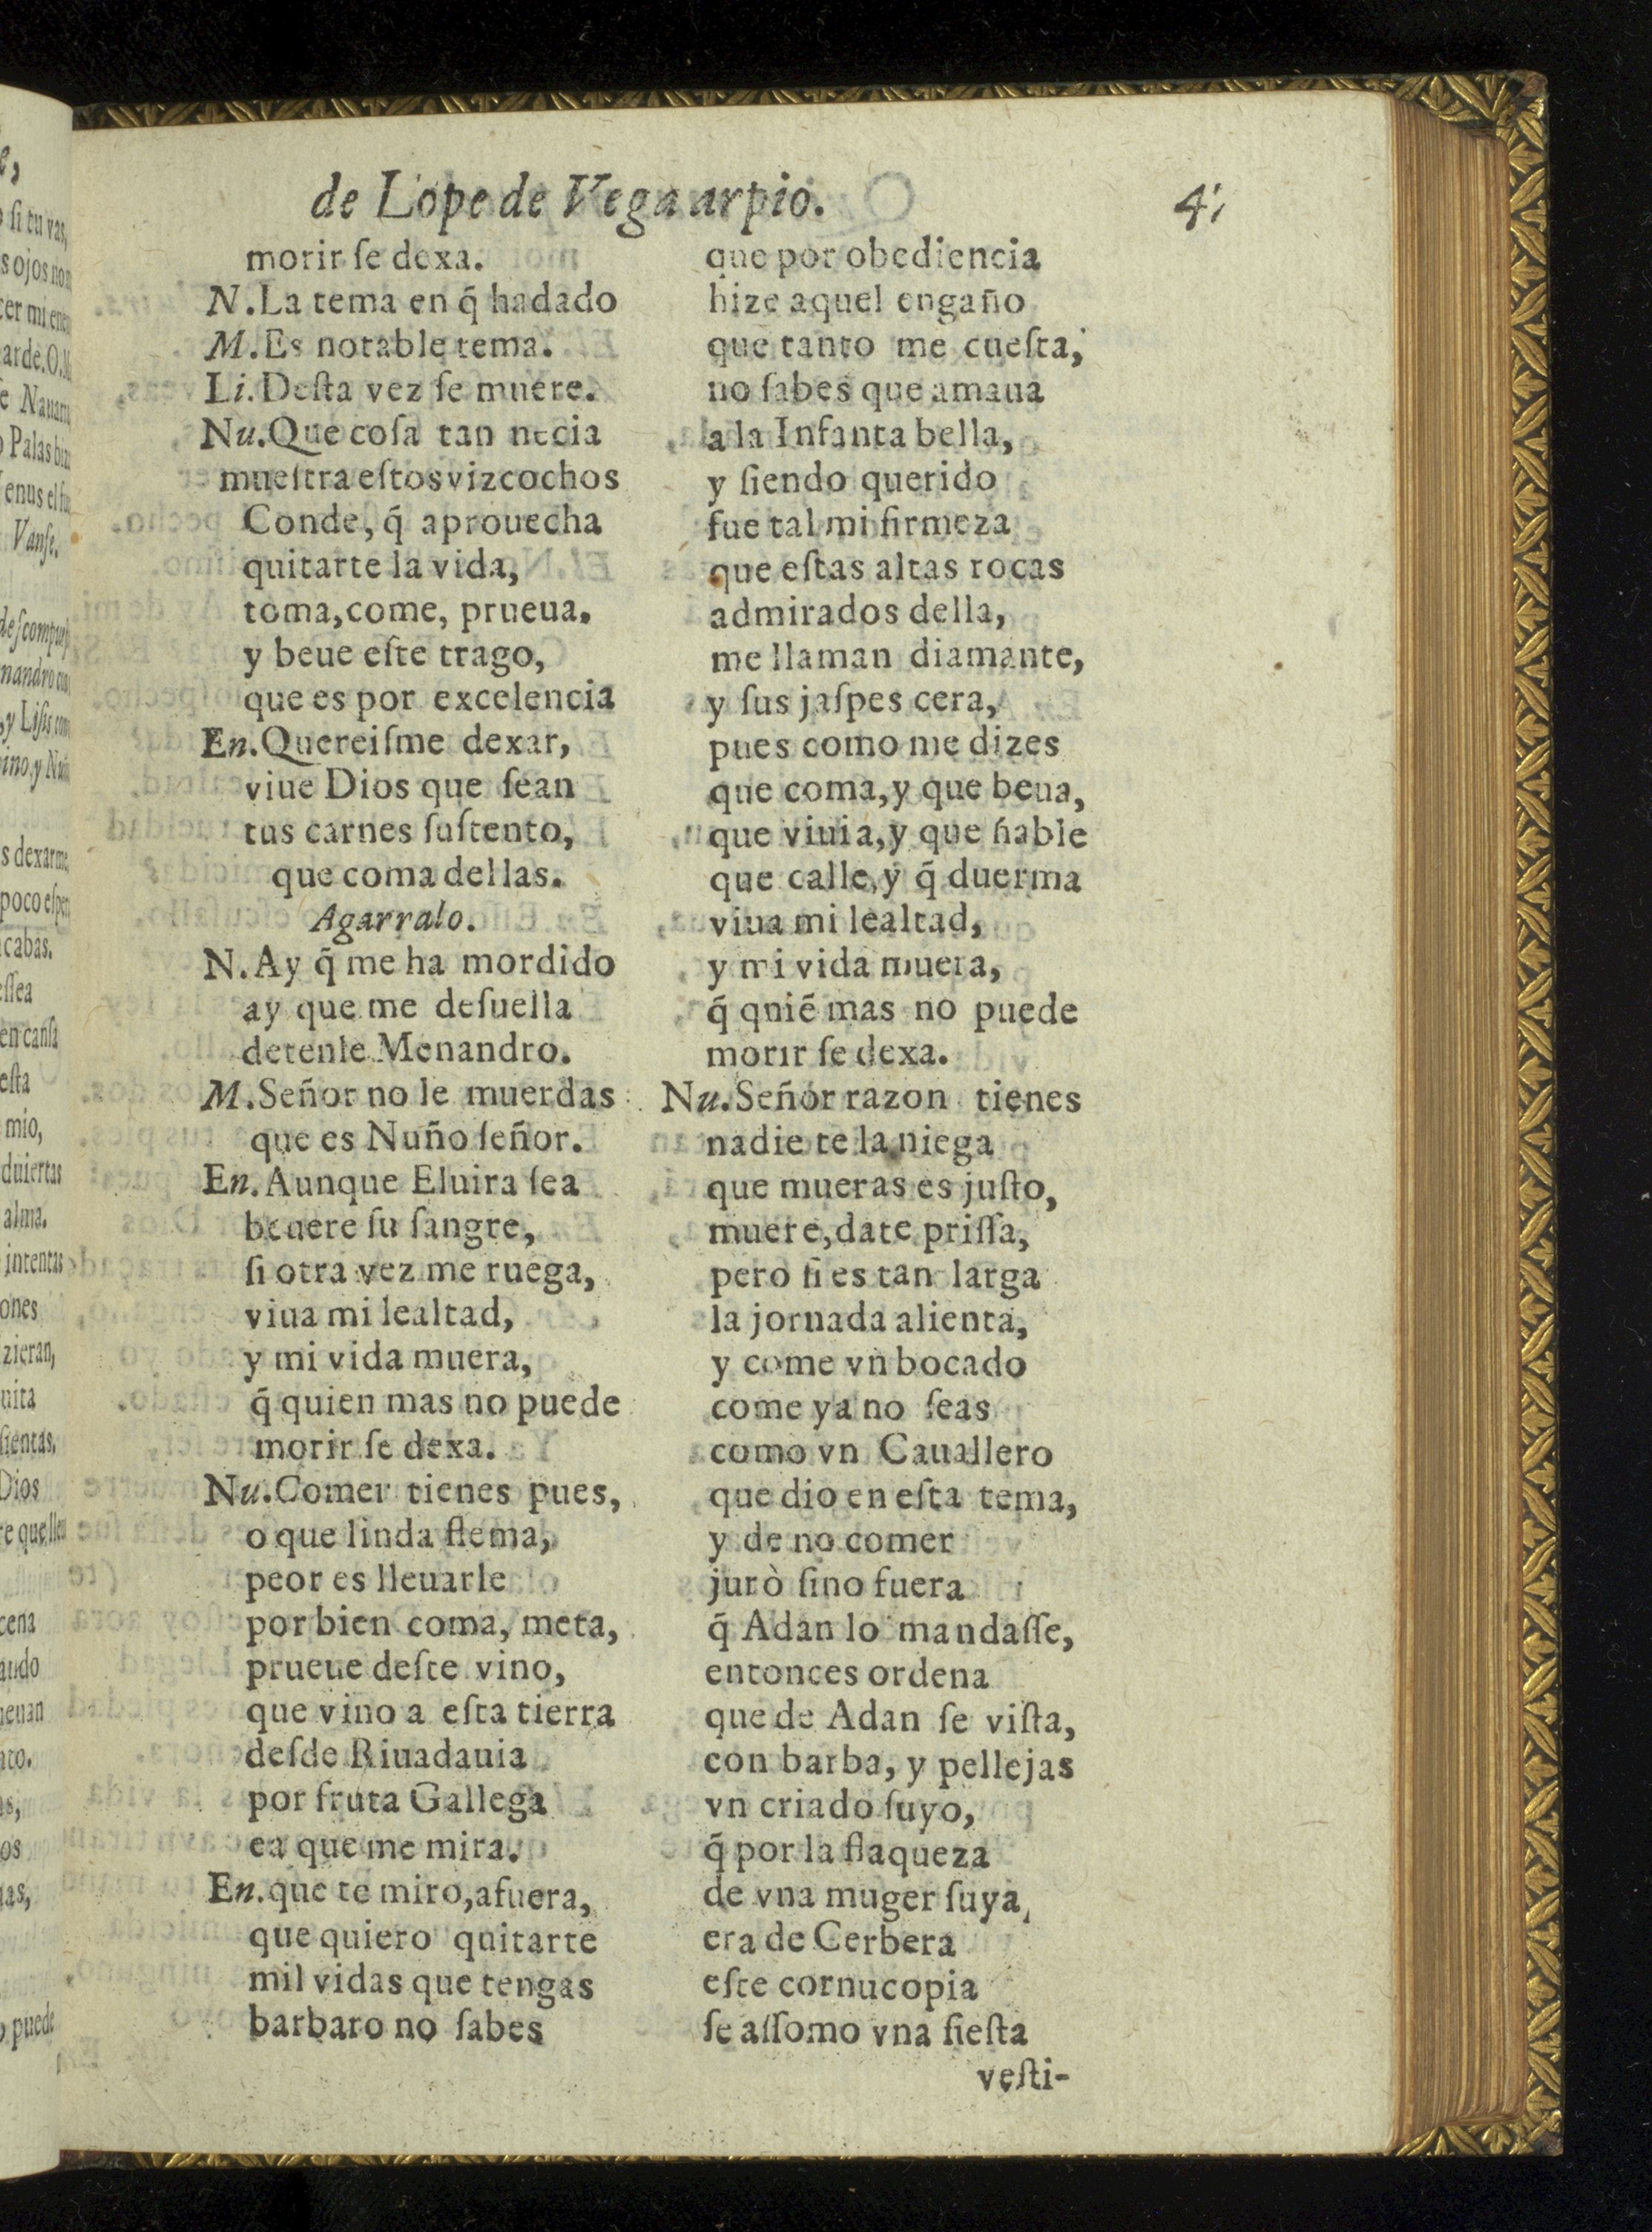 de Lope de Vega arpio.
41
morir ſe dexa.
N. La tema en q̃ ha dado
M. Es notable tema.
Li. Deſta vez ſe muere.
Nu. Que coſa tan necia
mueſtra eſtos vizcochos
Conde, q̃ aprouecha
quitarte la vida,
toma, come, prueua,
y beue eſte trago,
que es por excelencia
En. Quereiſme dexar,
viue Dios que ſean
tus carnes ſuſtento,
que coma dellas.
Agarralo.
N. Ay q̃ me ha mordido
ay que me deſuella
detenle Menandro.
M. Señor no le muerdas
que es Nuño ſeñor.
En. Aunque Eluira ſea
beuere ſu ſangre,
ſi otra vez me ruega,
viua mi lealtad,
y mi vida muera,
q̃ quien mas no puede
morir ſe dexa.
Nu. Comer tienes pues,
o que linda flema,
peor es lleuarle
por bien coma, meta,
prueue deſte vino,
que vino a eſta tierra
deſde Riuadauia
por fruta Gallega
ea que me mira.
En. que te miro, afuera,
que quiero quitarte
mil vidas que tengas
barbaro no ſabes
que por obediencia
hize aquel engaño
que tanto me cueſta,
no ſabes que amaua
a la Infanta bella,
y ſiendo querido
fue tal mi firmeza
que eſtas altas rocas
admirados della,
me llaman diamante,
y ſus jaſpes cera,
pues como me dizes
que coma, y que beua,
que viuia, y que hable
que calle, y q̃ duerma
viua mi lealtad,
y mi vida muera,
q̃ qniẽ mas no puede
morir ſe dexa.
Nu. Señor razon tienes
nadie te la niega
que mueras es juſto,
muere, date priſſa,
pero ſi es tan larga
la jornada alienta,
y come vn bocado
come ya no ſeas
como vn Cauallero
que dio en eſta tema,
y de no comer
jurò ſino fuera
q̃ Adan lo mandaſſe,
entonces ordena
que de Adan ſe viſta,
con barba, y pellejas
vn criado ſuyo,
q̃ por la flaqueza
de vna muger ſuya,
era de Cerbera
eſte cornucopia
ſe aſſomo vna fieſta
veſti-